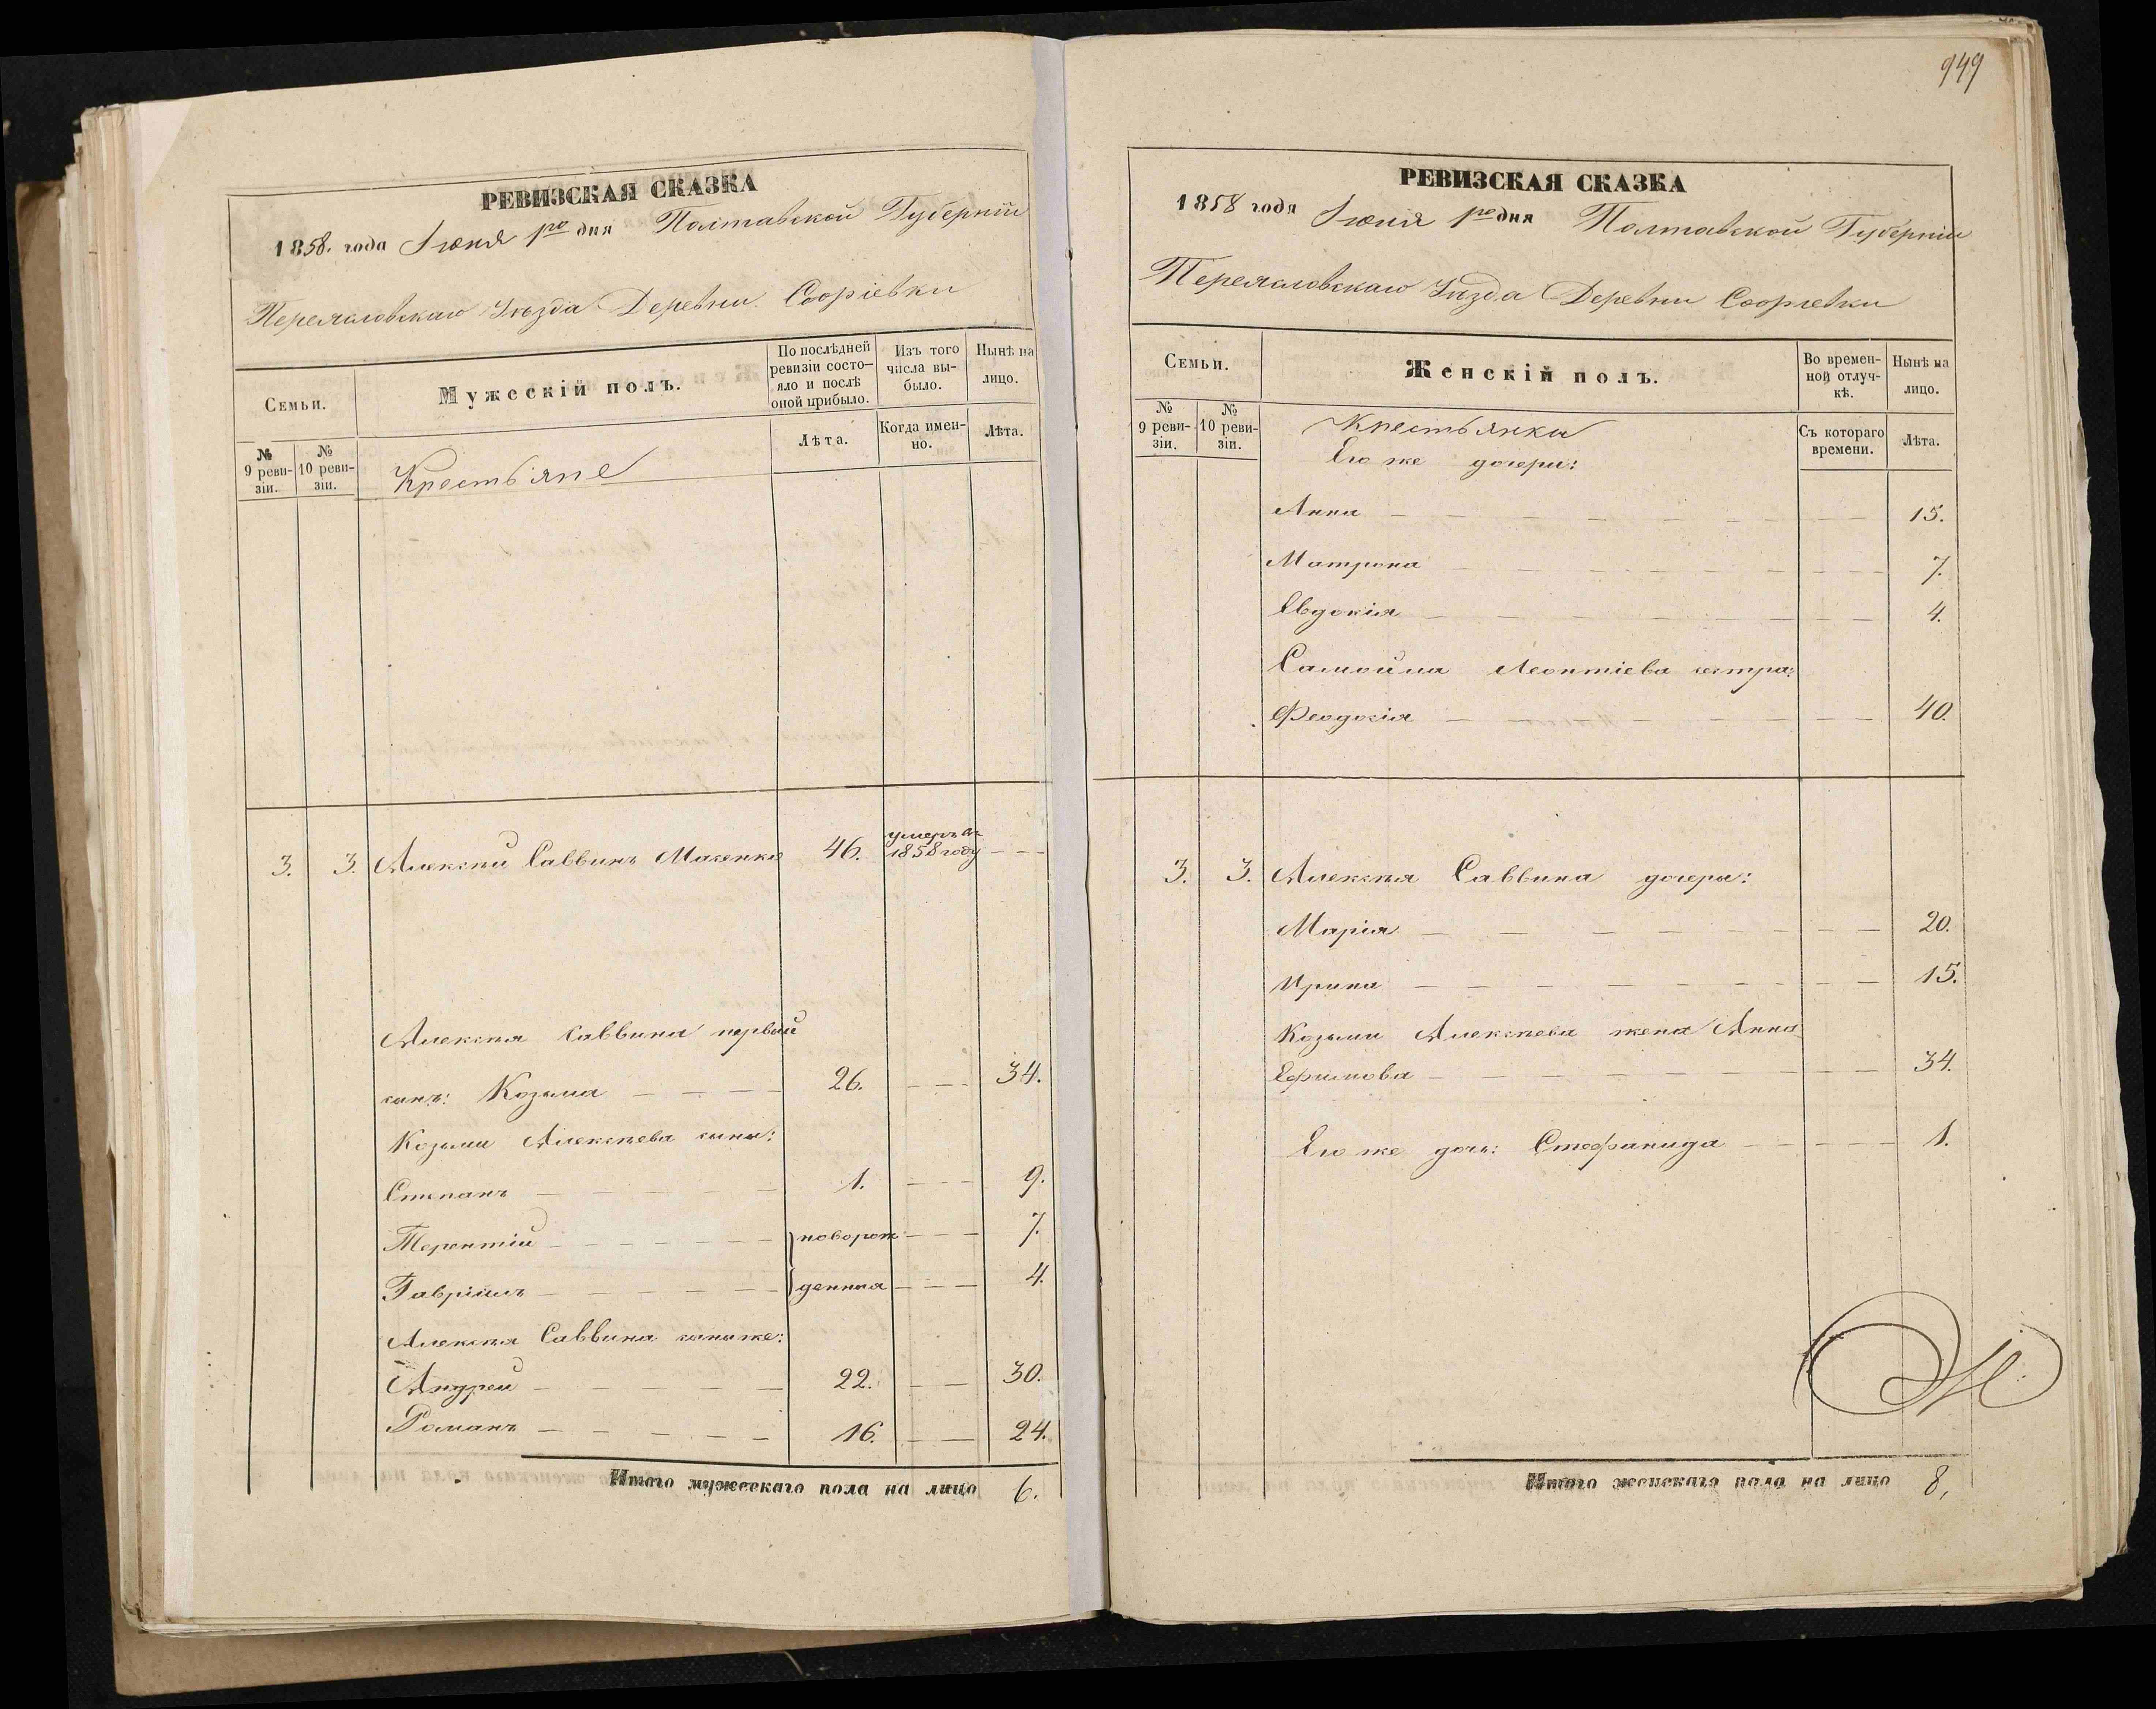 949
РЕВИЗСКАЯ СКАЗКА
1858. года Іюня 1го дня Полтавской Губерніи
Переяславскаго Уѣзда Деревни Софіевки
Семьи.
Мужескій полъ.
По послѣдней ревизіи состо-
яло и послѣ
оной прибыло.
Изъ того
числа вы-
было.
Нынѣ на
лицо.
№
9 реви-
зіи.
№
10 реви-
зіи.
Крестьяне
Лѣта.
Когда имен-
но.
Лѣта.
3. 3. Алексѣй Саввинъ Макенко 46. умеръ въ 1858 году — —
Алексѣя Саввина первый
сынъ: Козьма — — — 26. — — — 34.
Козьмы Алексѣева сыны:
Степанъ — — — — — 1. — — — 9.
Терентій — — — — — — новорож — — — 7.
Гавріилъ — — — — — — денныя — — — 4.
Алексѣя Саввина сыны же:
Андрей — — — — — 22. — — 30.
Романъ — — — — — 16. — — 24.
Итого мужескаго пола на лицо 6.
РЕВИЗСКАЯ СКАЗКА
1858 года Іюня 1го дня Полтавской Губерніи
Переяславскаго Уѣзда Деревни Софіевки
Семьи.
Женскій полъ.
Во времен-
ной отлуч-
кѣ.
Нынѣ на
лицо.
№
9 реви-
зіи.
№
10 реви-
зіи.
Крестьянки
Съ котораго
времени.
Лѣта.
Его же дочери:
Анна — — — — — — — — — 15.
Матрона — — — — — — — — — 7.
Евдокія — — — — — — — — — 4.
Самойла Леонтіева сестра:
Феодосія — — — — — — — — 40.
3. 3. Алексѣя Саввина дочери:
Марія — — — — — — — — — 20.
Ирина — — — — — — — — — 15.
Козьмы Алексѣева жена Анна
Ефимова — — — — — — — — — 34.
Его же дочь: Стефанида — — — — — 1.
Итого женскаго пола на лицо 8,